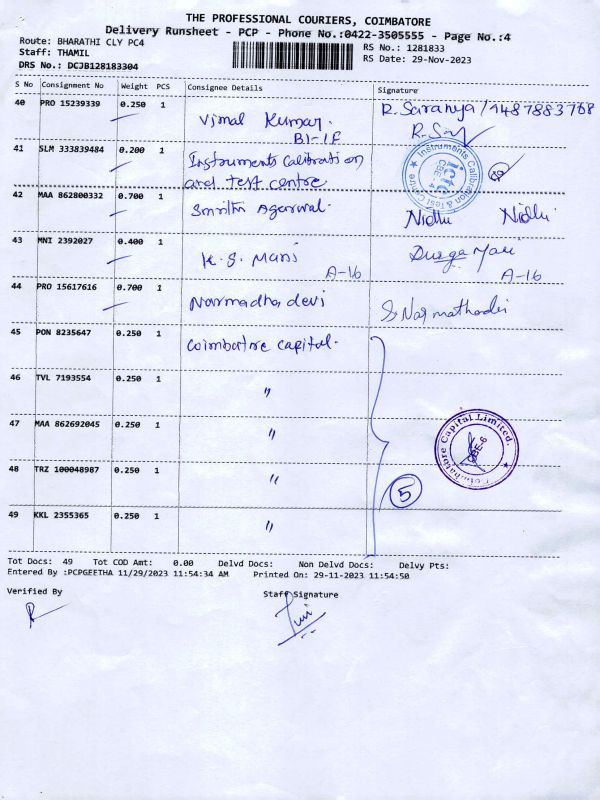 THE PROFESSIONAL COURIERS, COIMBATORE
Delivery Runsheet - PCP - Phone No.:0422-3505555 - Page No.:4
Route: BHARATHI CLY PC4
RS No.: 1281833
Staff: THAMIL
RS Date: 29-Nov-2023
DRS No.: DCJB128183304
S No Consignment No Weight PCS Consignee Details Signature
40 PRO 15239339 0.250 1 Vimal Kumar. R. Saranya / 9487883768
B1-1F R. Say
41 SLM 333839484 0.200 1 Instruments Calibration
and test centre
Instruments Calibration & Test Centre
ictc
CBE-4
42 MAA 862800332 0.700 1 Smrithi Agarwal. Nidhi Nidhi
43 MNI 2392027 0.400 1 K. S. Mani Durga Mani
A-16 A-16
44 PRO 15617616 0.700 1 Narmadha devi S. Narmathadevi
45 PON 8235647 0.250 1 Coimbatore capital.
46 TVL 7193554 0.250 1 "
47 MAA 862692045 0.250 1 "
Coimbatore Capital Limited.
CBE-6
48 TRZ 100048987 0.250 1 "
5
49 KKL 2355365 0.250 1 "
Tot Docs: 49 Tot COD Amt: 0.00 Delvd Docs: Non Delvd Docs: Delvy Pts:
Entered By :PCPGEETHA 11/29/2023 11:54:34 AM Printed On: 29-11-2023 11:54:50
Verified By Staff Signature